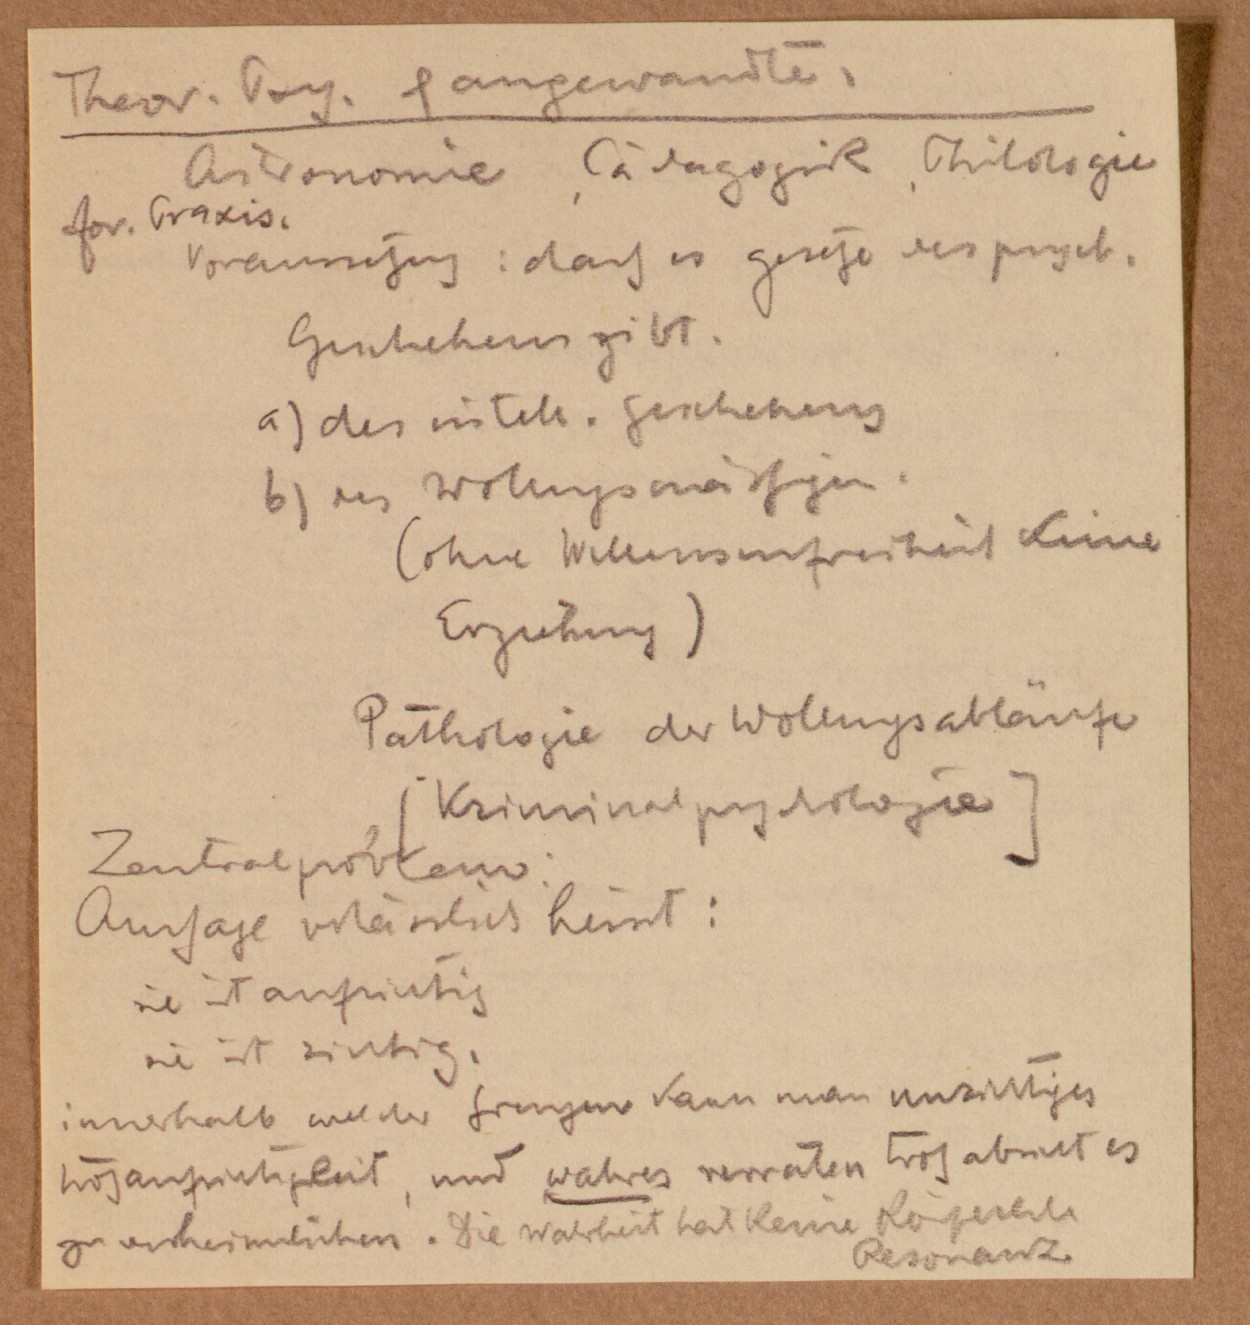 Theor. Psy. & angewandte.
Astronomie, Pädagogik, Philologie
for. Praxis.
Voraussetzung : dass es gesetze des psych.
Geschehens gibt.
a) des intell. geschehens
b) des Wollungsmässigen.
(ohne Willensunfreiheit keine
Erziehung)
Pathologie der Wollungsabläufe
[Kriminalpsychologie]
Zentralproblem:
Aussage verlässlich heisst :
sie ist aufrichtig
sie ist richtig.
innerhalb welcher grenzen kann man unrichtiges
trotz aufrichtigkeit, und wahres verraten trotz absicht es
zu verheimlichen. Die Wahrheit hat keine körperliche
Resonanz